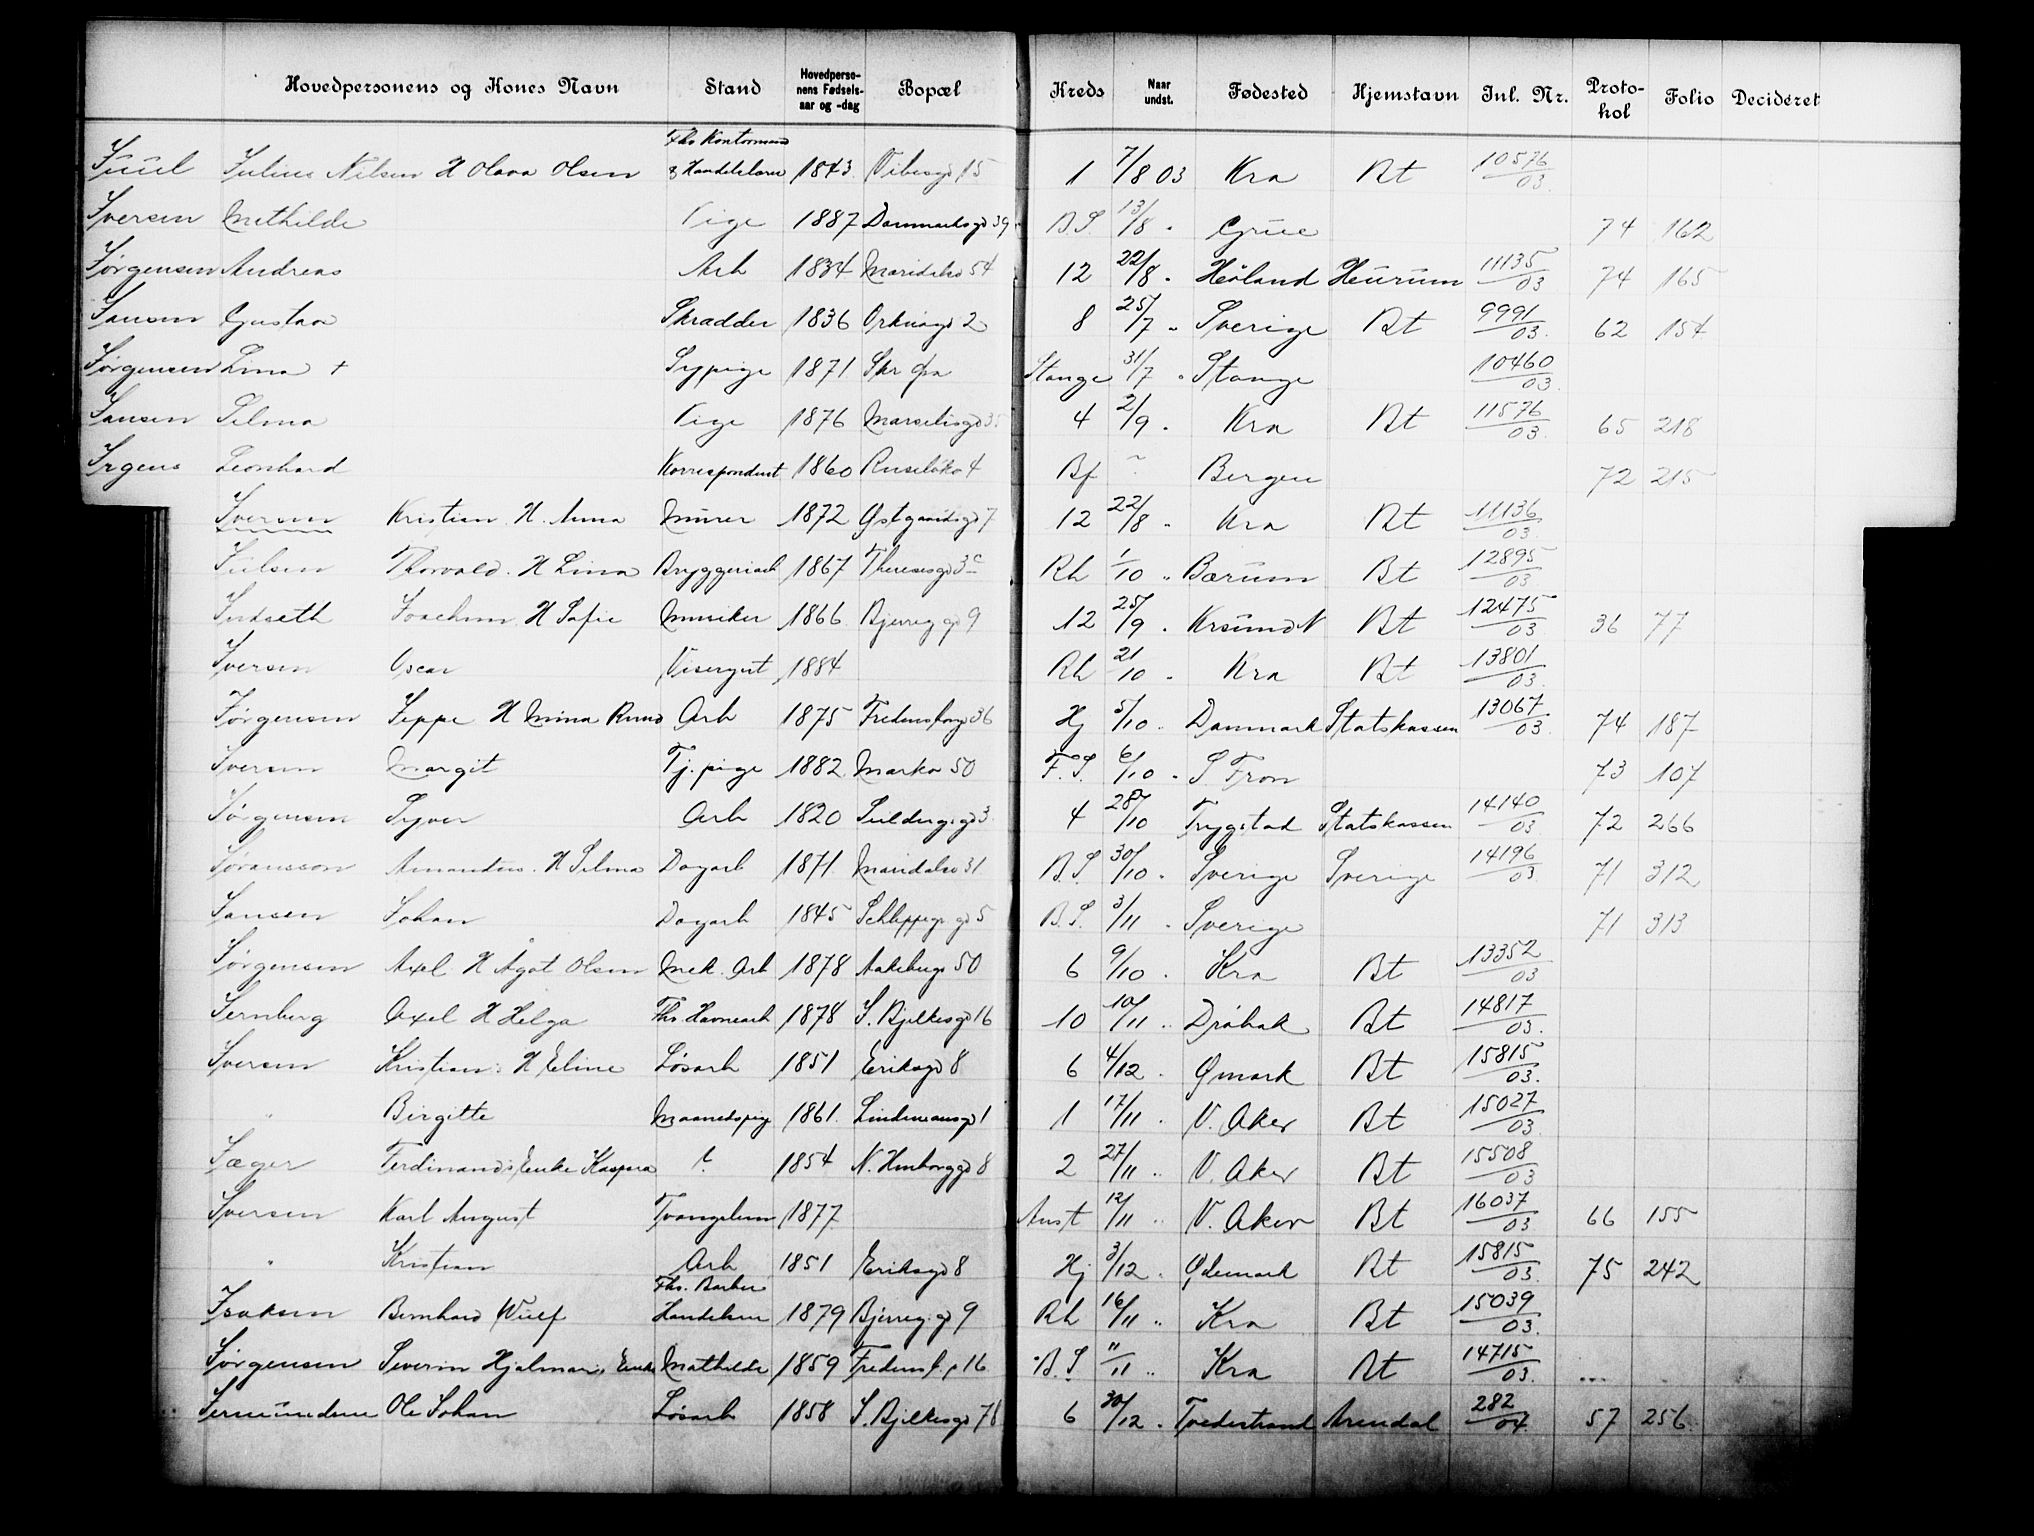 Hovedpersonens og Kones Navn Stand Hovedpersonens Fødselsaar og -dag Bopæl Kreds Naar undst. Fødested Hjemstavn Jnl. Nr. Protokol Folio Decideret
Fhv Kontormand
Juul Julius Nilsen H Olava Olsen & Handelslærer 1843 Vibesgd 15 1 7/8 03 Kra Bt 10576/03
Iversen Methilde Pige 1887 Danmarksgd 39 B.S. 13/8 " Grue 74 162
Jørgensen Andreas Arb 1834 Maridalsv 54 12 22/8 " Høland Heurum 11135/03 74 165
Jansen Gustav Skrædder 1836 2 8 25/7 " Sverige Bt 9991/03 62 154
Jørgensen Lina + Sypige 1871 Stange 31/7 " Stange 10460/03
Jansen Selma Pige 1876 Marselisgd 35 4 2/9 " Kra Bt 11576/03 65 218
Irgens Leonhard Korrespondent 1860 Ruseløkv 4 Bf " Bergen 72 215
Iversen Kristian H. Anna Murer 1872 Østgaardsgd 7 12 22/8 " Kra Bt 11136/03
Julsen Thorvald H Lina Bryggeriarb 1867 Theresesgd 3c Rh 1/10 " Bærum Bt 12895/03
Indseth Joachim H Sofie Musiker 1866 Bjerreggd 9 12 25/9 " KrsundN Bt 12475/03 36 77
Iversen Oscar Visergut 1884 Rh 21/10 " Kra Bt 13801/03
Jørgensen Jeppe H Mina Arb 1875 Fredensborgv 36 Hj 5/10 " Danmark Statskassen 13067/03 74 187
Iversen Margit Tj. pige 1882 Markv 50 F.S. 6/10 " S. Fron 73 107
Jørgensen Syver Arb 1820 3 4 28/10 Trygstad Statskassen 14140/03 72 266
Jøransson Amandus H Selma Dagarb 1871 Maridalsv 31 B.S 30/10 " Sverige Sverige 14196/03 71 312
Jansen Johan Dagarb 1845 Schleppegr.gd 5 B.S. 3/11 " Sverige 71 313
Jørgensen Axel H Ågot Olsen Mek. Arb 1878 Aakebergv 50 6 9/10 " Kra Bt 13352/03
Jernberg Axel H Helga Fhv. Havnearb 1878 J. Bjelkesgd 16 10 10/11 " Drøbak Bt 14817/03
Iversen Kristian H Eline Løsarb 1851 Eriksgd 8 6 4/12 " Ømark Bt 15815/03
" Birgitte Maanedspige 1861 Lindemansgd 1 1 17/11 " V. Aker Bt 15027/03
Jæger Ferdinands Enke Kaspara ? 1854 8 2 27/11 " V. Aker Bt 15508/03
Iversen Karl August Tvangslem 1877 Anst 12/11 " V. Aker Bt 16037/03 66 155
" Kristian Arb 1851 Eriksgd 8 Hj 3/12 " Ødemark Bt 15815/03 75 242
Fhv. Barber
Isaksen Bernhard Wulf Handelsm 1879 Bjerreg.gd 9 Rh 16/11 " Kra Bt 15039/03
Jørgensen Severin Hjalmars Enke Mathilde 1859 16 B.S 11/11 " Kra Bt 14715/03
Ole Johan Løsarb 1858 J. Bjelkesgd 78 6 30/12 " Tvedestrand Arendal 282/04 57 256